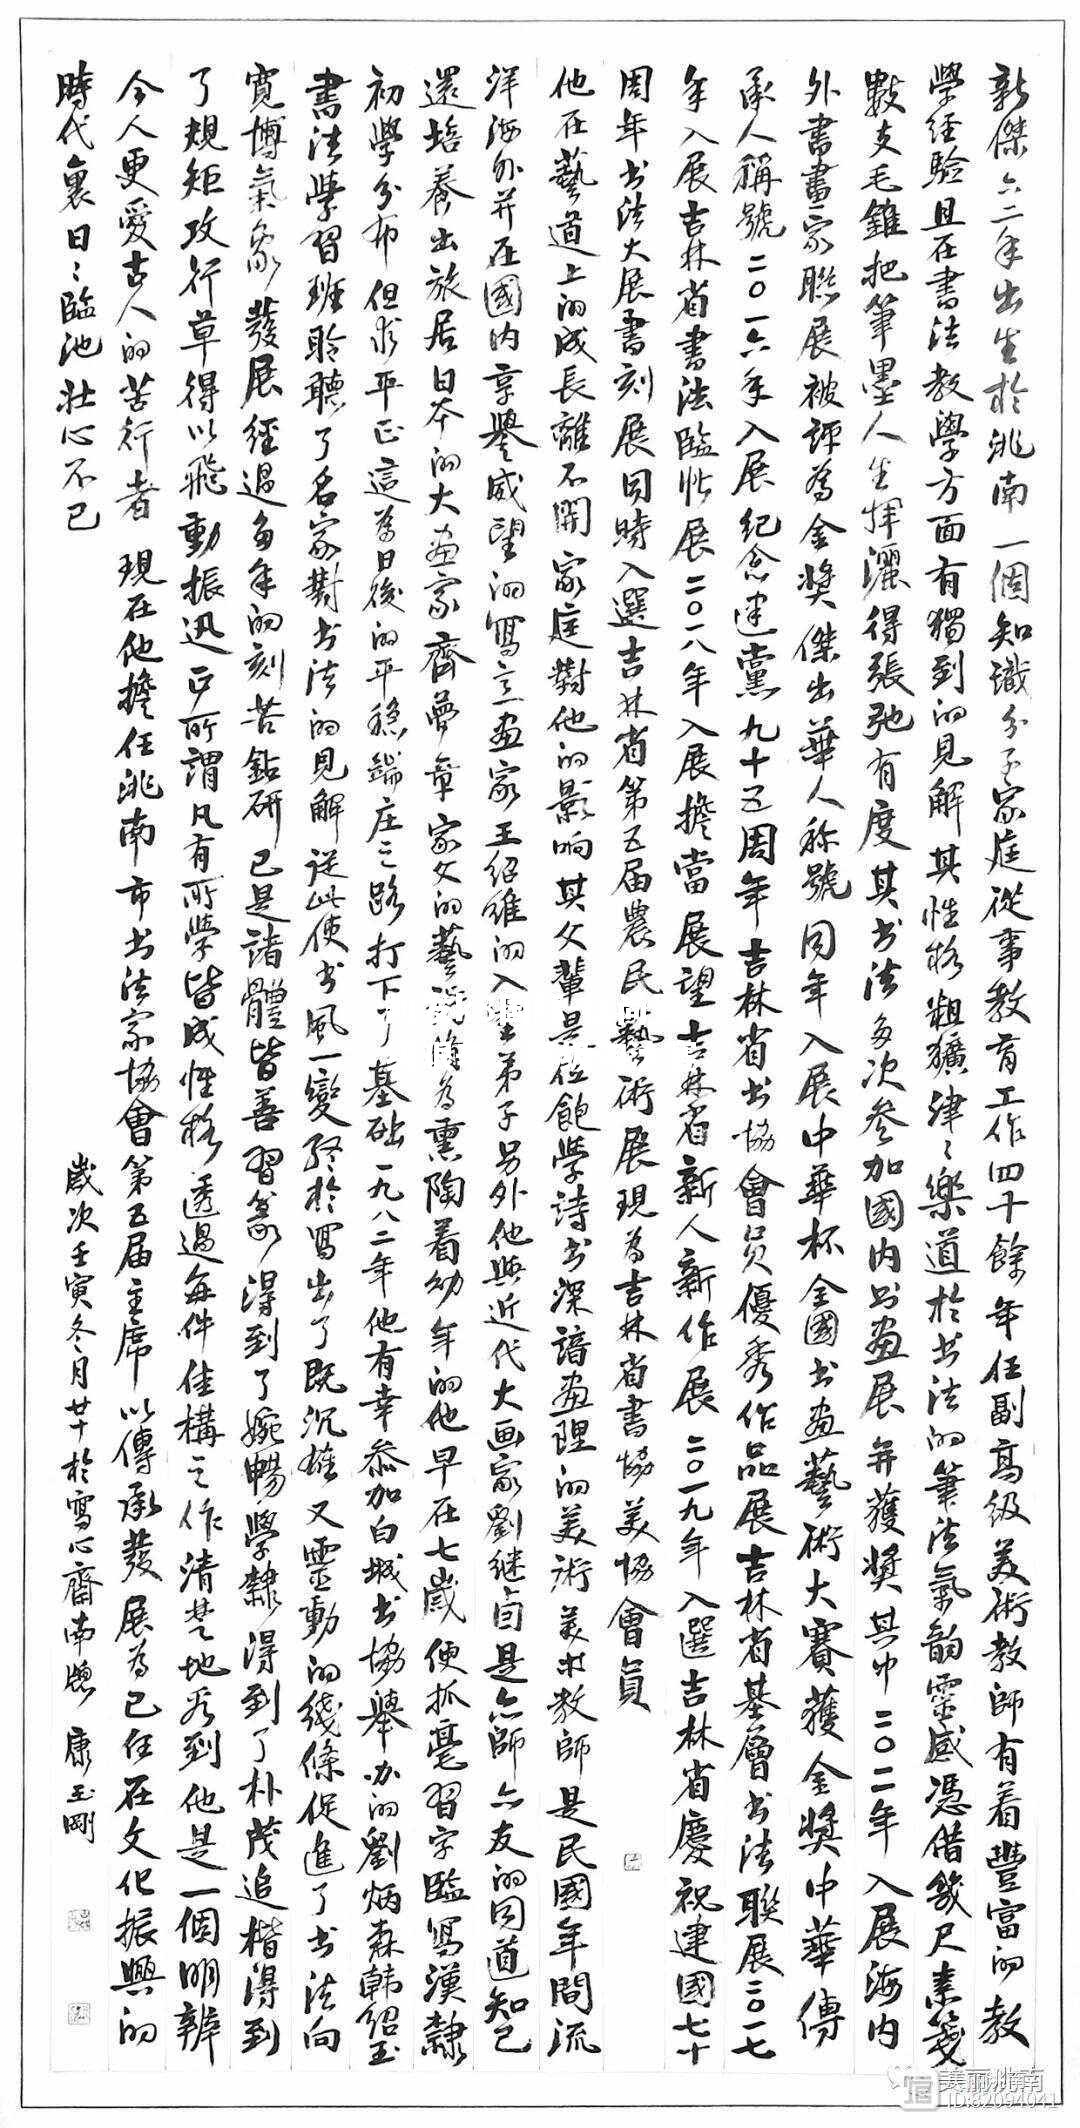 新傑六二年出生於洮南一個知識分子家庭從事教育工作四十餘年任副高級美術教師有着豐富的教
學經驗且在書法教學方面有獨到的見解其性格粗獷津〻樂道於书法的筆法氣韵靈感憑借幾尺素箋
數支毛錐把筆墨人生揮灑得張弛有度其书法多次参加國内书画展并獲獎其中二〇二年入展海内
外書畫家聯展被評為金獎傑出華人称號同年入展中華杯全國书画藝術大賽獲金獎中華傳
承人稱號二〇一六年入展紀念建黨九十五周年吉林省书協會員優秀作品展吉林省基層书法聯展二〇一七
年入展吉林省書法臨帖展二〇一八年入展擔當展望吉林省新人新作展二〇一九年入選吉林省慶祝建國七十
周年书法大展書刻展同時入選吉林省第五届農民藝術展現為吉林省書協美協會員
他在藝道上的成長離不開家庭對他的影响其父輩是位飽學詩书深諳画理的美術美术教師是民國年間流
洋海外并在國内享譽威望的寫意画家王紹維的入室弟子另外他與近代大画家劉继卣是亦師亦友的同道知己
還培養出旅居日本的大画家齊夢章家父的藝術為熏陶着幼年的他早在七歲便抓毫習字臨寫漢隸
初學分布但求平正這為日後的平穩端庄之路打下了基础一九八二年他有幸参加白城书協舉办的劉炳森韓紹玉
書法學習班聆聽了名家對书法的見解從此使书風一變终於寫出了既沉雄又靈動的綫條促進了书法向
寬博氣象發展經過多年的刻苦鉆研已是諸體皆善習篆得到了婉暢學隸得到了朴茂追楷得到
了規矩攻行草得以飛動振迅正所謂凡有所學皆成性格透過每件佳構之作清楚地看到他是一個明辨
今人更愛古人的苦行者現在他擔任洮南市书法家協會第五届主席以傳承發展為己任在文化振興的
時代裏日〻臨池壯心不已
歲次壬寅冬月廿十於寫心齋南牕康玉剛
美丽洮南
ID:82094041